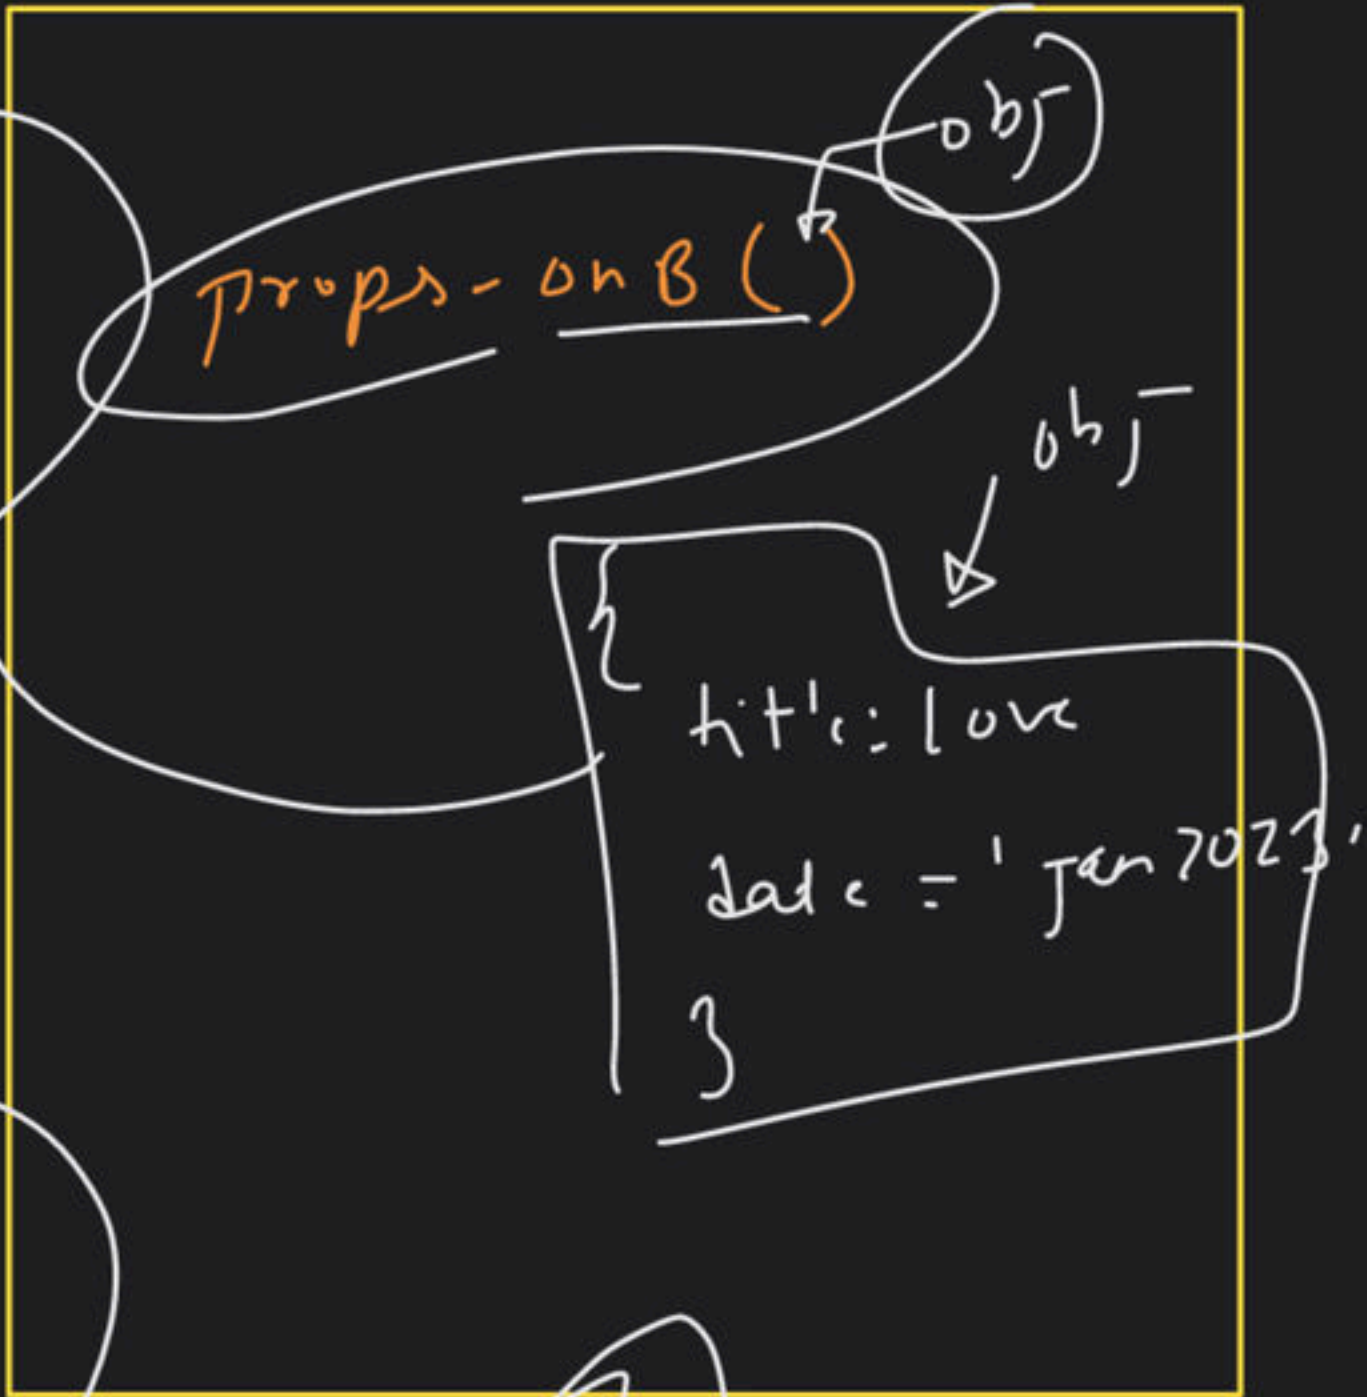 obj
props-onB()
obj
{
title: love
date = 'Jan 2023'
}